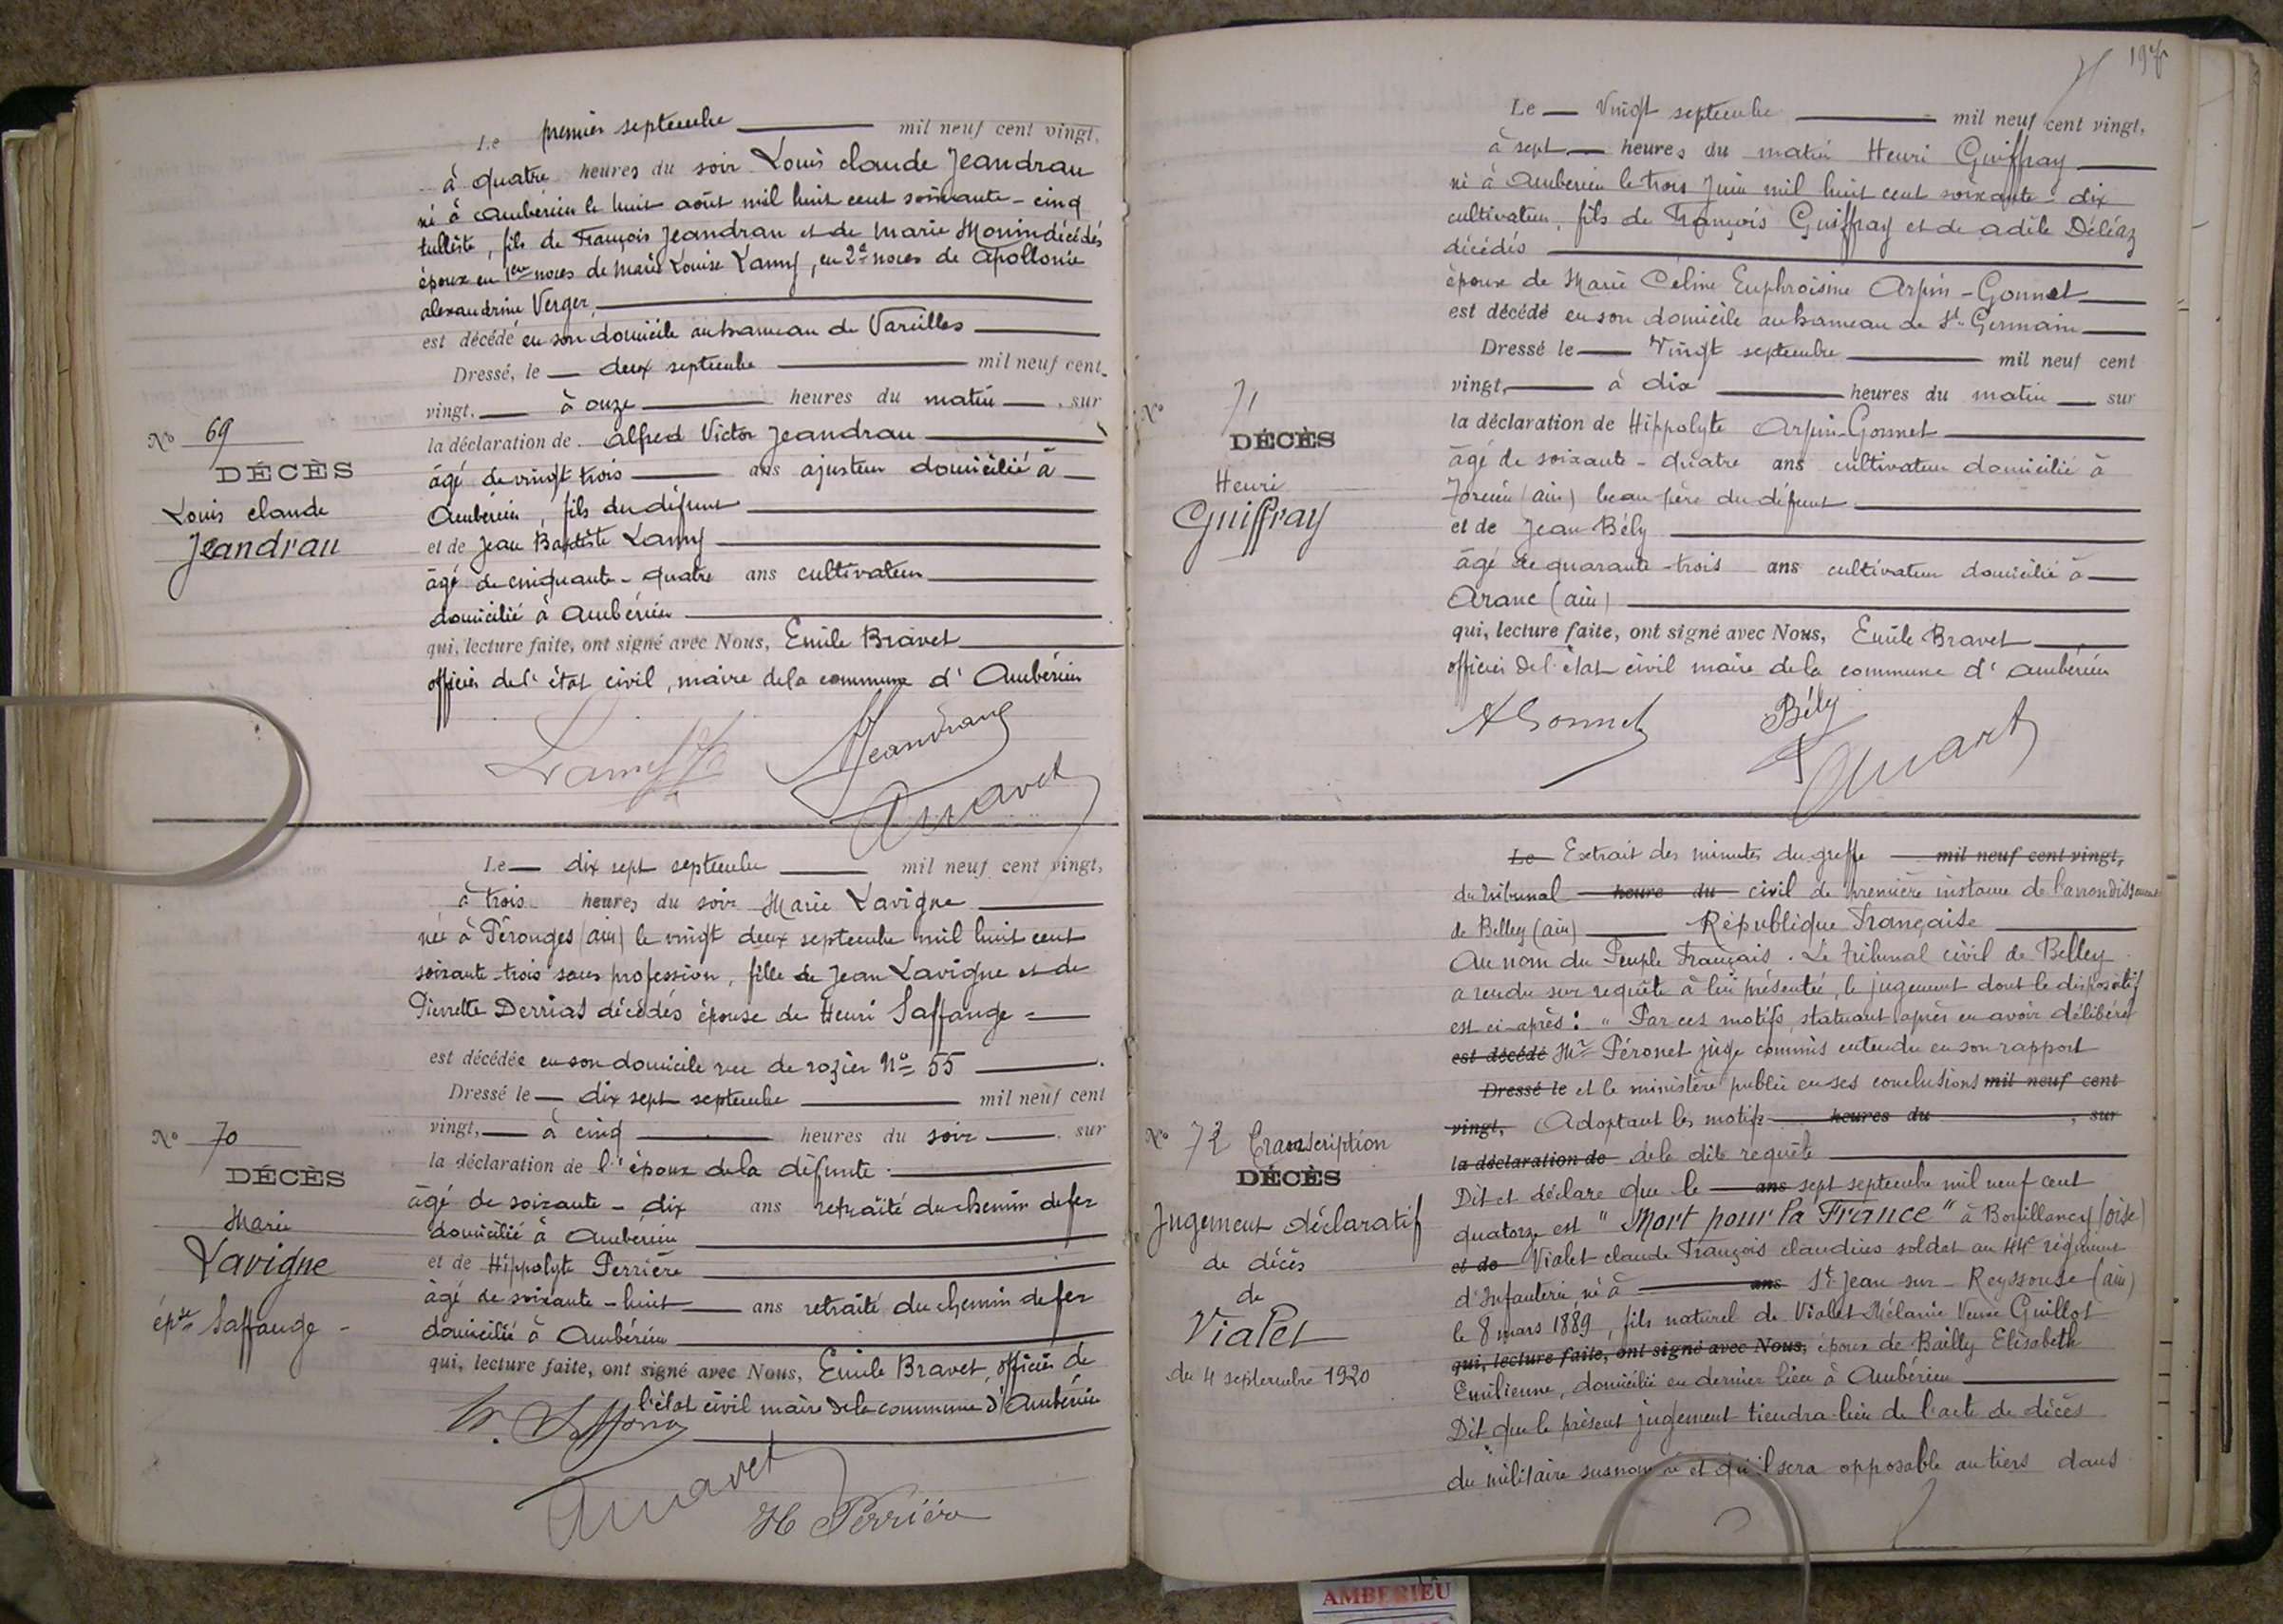 Le premier septembre mil neuf cent vingt,
à quatre heures du soir Louis Claude Jeandrau
né à Ambérieu le huit août mil huit cent soixante-cinq
tulliste, fils de François Jeandrau et de Marie Monin décédés
époux en 1ères noces de Marie Louise Lamy, en 2e noces de Apollonie
Alexandrine Verger,
est décédé en son domicile au hameau de Vareilles
Dressé, le deux septembre mil neuf cent
vingt, à onze heures du matin, sur
No 69
la déclaration de Alfred Victor Jeandrau
DÉCÈS
âgé de vingt trois ans ajusteur domicilié à
Louis Claude
Ambérieu, fils du défunt
Jeandrau
et de Jean Baptiste Lamy
âgé de cinquante-quatre ans cultivateur
domicilié à Ambérieu
qui, lecture faite, ont signé avec Nous, Emile Bravet
officier de l'état civil, maire de la commune d'Ambérieu
Jeandrau
Le dix sept septembre mil neuf cent vingt,
à trois heures du soir Marie Lavigne
née à Pérouges (ain) le vingt deux septembre mil huit cent
soixante-trois sans profession, fille de Jean Lavigne et de
Pierrette Derrias décédés épouse de Henri Saffange
est décédée en son domicile rue de rozier No 55
Dressé le dix sept septembre mil neuf cent
No 70
vingt, à cinq heures du soir, sur
la déclaration de l'époux de la défunte
DÉCÈS
âgé de soixante-dix ans retraité du chemin de fer
Marie
domicilié à Ambérieu
Lavigne
et de Hippolyte Perrière
âgé de soixante-huit ans retraité du chemin de fer
épse Saffange
domicilié à Ambérieu
qui, lecture faite, ont signé avec Nous, Emile Bravet, officier de
l'état civil maire de la commune d'Ambérieu
H Perrière
Le vingt septembre mil neuf cent vingt,
à sept heures du matin Henri Guiffray
né à Ambérieu le trois Juin mil huit cent soixante-dix
cultivateur, fils de François Guiffray et de Adèle Déléaz
décédés
époux de Marie Céline Euphroisine Arpin-Gonnet
est décédé en son domicile au hameau de St Germain
Dressé le Vingt septembre mil neuf cent
No 71
vingt, à dix heures du matin sur
DÉCÈS
la déclaration de Hippolyte Arpin-Gonnet
Henri
âgé de soixante-quatre ans cultivateur domicilié à
Guiffray
(ain) beau père du défunt
et de Jean Bély
âgé de quarante-trois ans cultivateur domicilié à
Aranc (ain)
qui, lecture faite, ont signé avec Nous, Emile Bravet
officier de l'état civil maire de la commune d'Ambérieu
A Gonnet Bély
Le Extrait des minutes du greffe mil neuf cent vingt,
du tribunal heure du civil de première instance de l'arrondissement
de Belley (ain) République Française
Au nom du Peuple Français. Le Tribunal civil de Belley
a rendu sur requête à lui présentée, le jugement dont le dispositif
est ci-après : "Par ces motifs, statuant après en avoir délibéré
est décédé Mr Péronet juge commis entendu en son rapport
Dressé le et le ministère public en ses conclusions mil neuf cent
No 72 Transcription
vingt, Adoptant les motifs heures du , sur
DÉCÈS
la déclaration de de la dite requête
Jugement déclaratif
Dit et déclare que le ans sept septembre mil neuf cent
de décès
quatorze est "Mort pour la France" à Bouillancy (oise)
de
et de Vialet Claude François Claudius soldat au 44e régiment
Vialet
d'Infanterie, né à ans St Jean-sur-Reyssouse (ain)
du 4 septembre 1920
le 8 mars 1889, fils naturel de Vialet Mélanie Veuve Guillot
qui, lecture faite, ont signé avec Nous, époux de Bailly Elisabeth
Emilienne, domicilié en dernier lieu à Ambérieu
Dit que le présent jugement tiendra lieu de l'acte de décès
du militaire susnommé et qu'il sera opposable au tiers dans
AMBERIEU